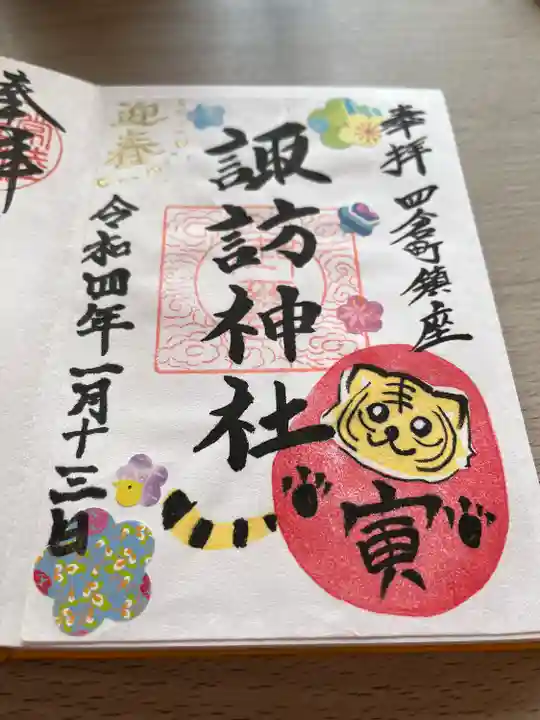 奉拝 四倉町鎮座
諏訪神社
寅
迎春
令和四年一月十三日
奉拝